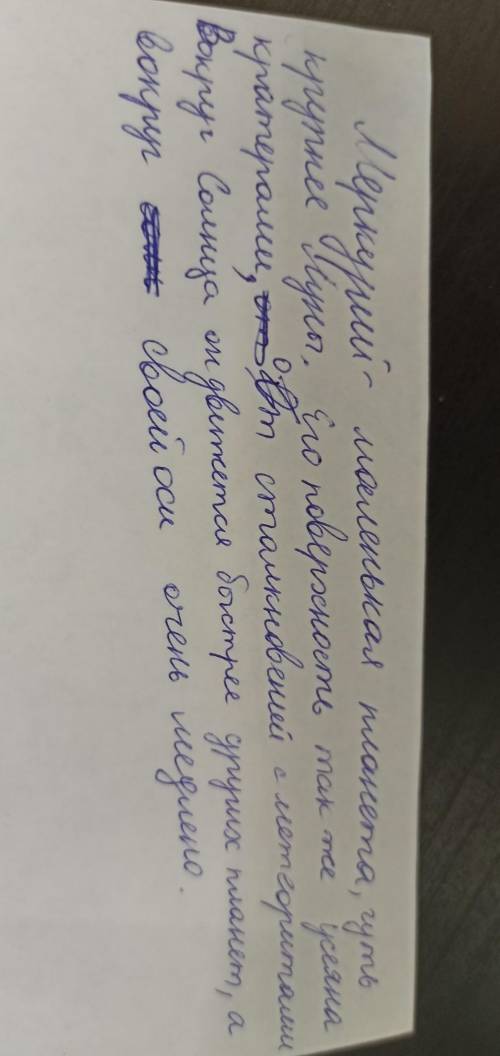 Меркурий - маленькая планета, чуть
крупнее Луны. Его поверхность так же усеяна
кратерами, от сталкновений с метеоритами
Вокруг Солнца он движется быстрее других планет, а
вокруг своей оси очень медлено.